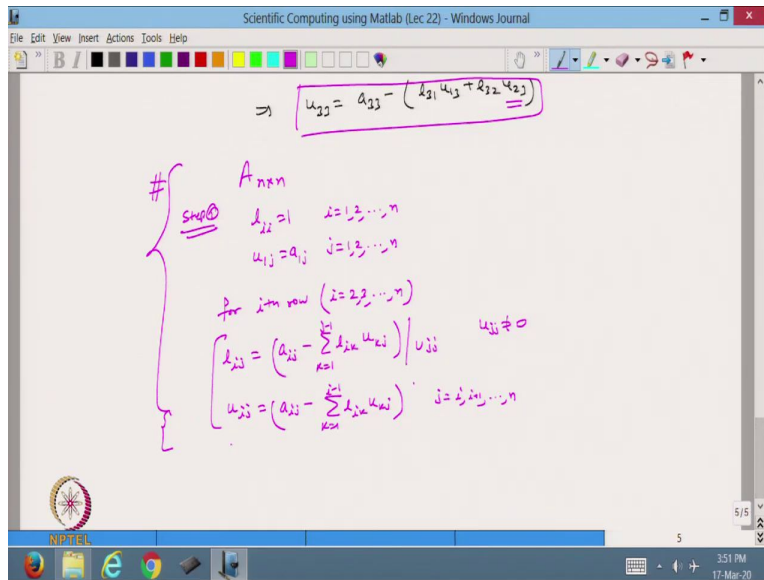 Scientific Computing using Matlab (Lec 22) - Windows Journal
File Edit View Insert Actions Tools Help
⇒ u₃₃ = a₃₃ - (l₃₁u₁₃ + l₃₂u₂₃)
# A n×n
Step ① l_ii = 1 i=1,2,...,n
u_1j = a_1j j=1,2,...,n
for ith row (i=2,3,...,n)
l_ij = (a_ij - Σ_{k=1}^{j-1} l_ik u_kj) / u_jj u_jj ≠ 0
u_ij = (a_ij - Σ_{k=1}^{i-1} l_ik u_kj) j=i,i+1,...,n
5/5
NPTEL
5
3:51 PM
17-Mar-20